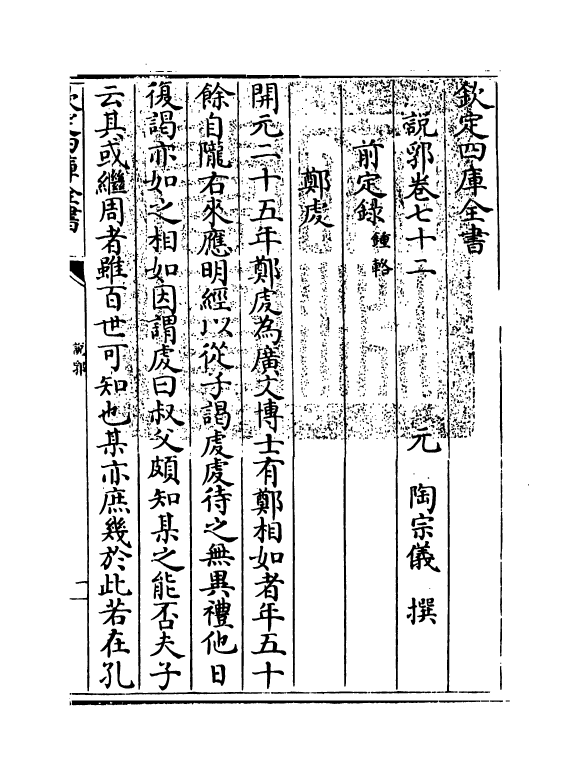 欽定四庫全書
説郛卷七十二
元　陶宗儀　撰
前定錄鍾輅
鄭虔
開元二十五年鄭虔為廣文博士有鄭相如者年五十
餘自隴右來應明經以從子謁虔虔待之無異禮他日
復謁亦如之相如因謂虔曰叔父頗知某之能否夫子
云其或繼周者雖百世可知也某亦庶幾於此若在孔
欽定四庫全書
説郛
二